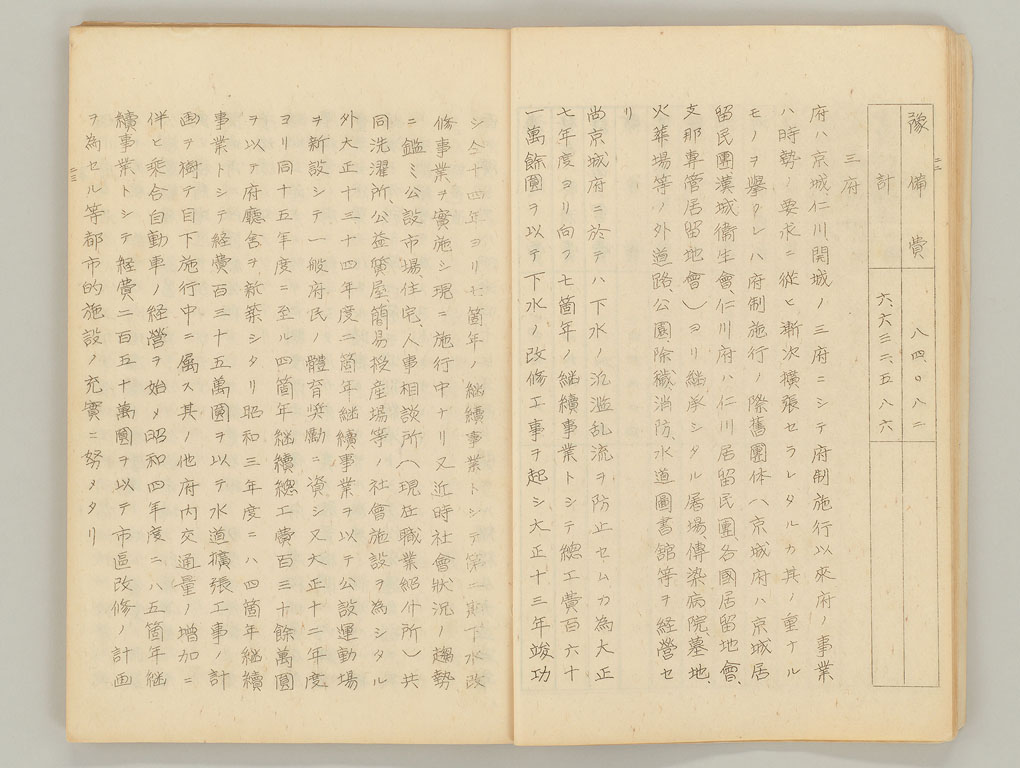 二二
豫備費 八四〇八二
計 六六三二五八六
三府
府ハ京城仁川開城ノ三府ニシテ府制施行以來府ノ事業
ハ時勢ノ要求ニ從ヒ漸次擴張セラレタルカ其ノ重ナル
モノヲ擧クレハ府制施行ノ際舊團体(京城府ハ京城居
留民團漢城衞生會、仁川府ハ仁川居留民團、各國居留地會、
支那專管居留地會)ヨリ継承シタル屠場、傳染病院、墓地、
火葬場等ノ外道路公園除穢、消防、水道圖書館等ヲ経營セ
リ
尚京城府ニ於テハ下水ノ氾濫乱流ヲ防止セムカ為大正
七年度ヨリ向フ七箇年ノ継續事業トシテ總工費百六十
一萬餘圓ヲ以テ下水ノ改修工事ヲ起シ大正十三年竣功
二三
シ今十四年ヨリ七箇年ノ継續事業トシテ第二期下水改
修事業ヲ實施シ現ニ施行中ナリ又近時社會狀況ノ趨勢
ニ鑑ミ公設市場、住宅、人事相談所(現在職業紹介所)共
同洗濯所、公益質屋、簡易授産場等ノ社會施設ヲ為シタル
外大正十三十四年度二箇年継續事業ヲ以テ公設運動場
ヲ新設シテ一般府民ノ體育奨勵ニ資シ又大正十二年度
ヨリ同十五年度ニ至ル四箇年継續總工費百三十餘萬圓
ヲ以テ府廳舎ヲ新築シタリ昭和三年度ニハ四箇年継續
事業トシテ経費百三十五萬圓ヲ以テ水道擴張工事ノ計
画ヲ樹テ目下施行中ニ属ス其ノ他府内交通量ノ增加ニ
伴ヒ乘合自動車ノ経營ヲ始メ昭和四年度ニハ五箇年継
續事業トシテ経費二百五十萬圓ヲ以テ市區改修ノ計画
ヲ為セル等都市的施設ノ充實ニ努メタリ